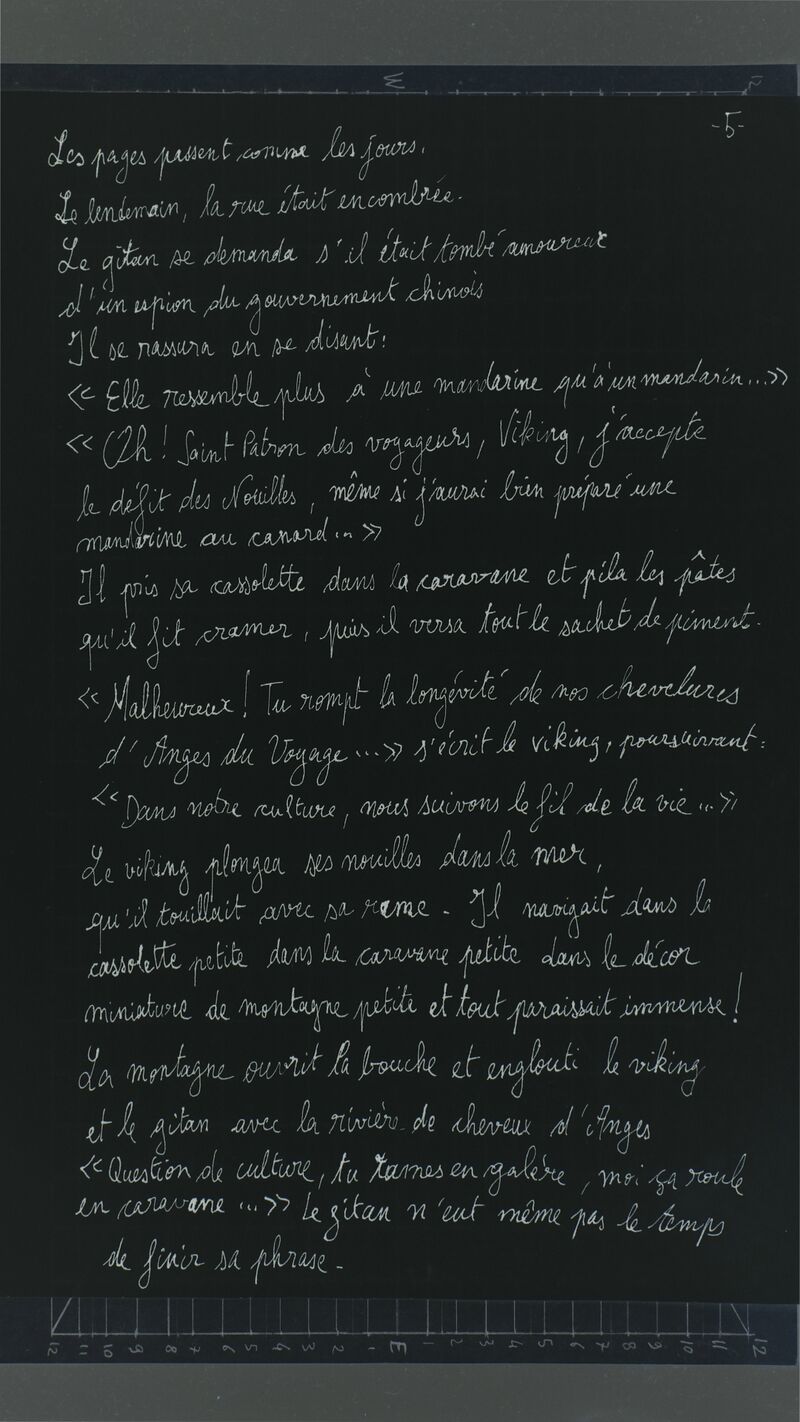 -5-
Les pages passent comme les jours.
Le lendemain, la rue était encombrée.
Le gitan se demanda s'il était tombé amoureux
d'un espion du gouvernement chinois
Il se rassura en se disant:
<< Elle ressemble plus à une mandarine qu'à un mandarin...>>
<< Oh! Saint Patron des voyageurs, Viking, j'accepte
le défit des Nouilles, même si j'aurai bien préparé une
mandarine au canard... >>
Il pris sa cassolette dans la caravane et pila les pâtes
qu'il fit cramer, puis il versa tout le sachet de piment.
<< Malheureux! Tu rompt la longévité de nos chevelures
d'Anges du Voyage...>> s'écrit le viking, poursuivant:
<< Dans notre culture, nous suivons le fil de la vie...>>
Le viking plongea ses nouilles dans la mer,
qu'il touillait avec sa rame. Il navigait dans la
cassolette petite dans la caravane petite dans le décor
miniature de montagne petite et tout paraissait immense!
La montagne ouvrit la bouche et englouti le viking
et le gitan avec la rivière de cheveux d'Anges
<< Question de culture, tu rames en galère, moi ça roule
en caravane...>> Le gitan n'eut même pas le temps
de finir sa phrase.
W
12
12 11 10 9 8 7 6 5 4 3 2 1 E 1 2 3 4 5 6 7 8 9 10 11 12